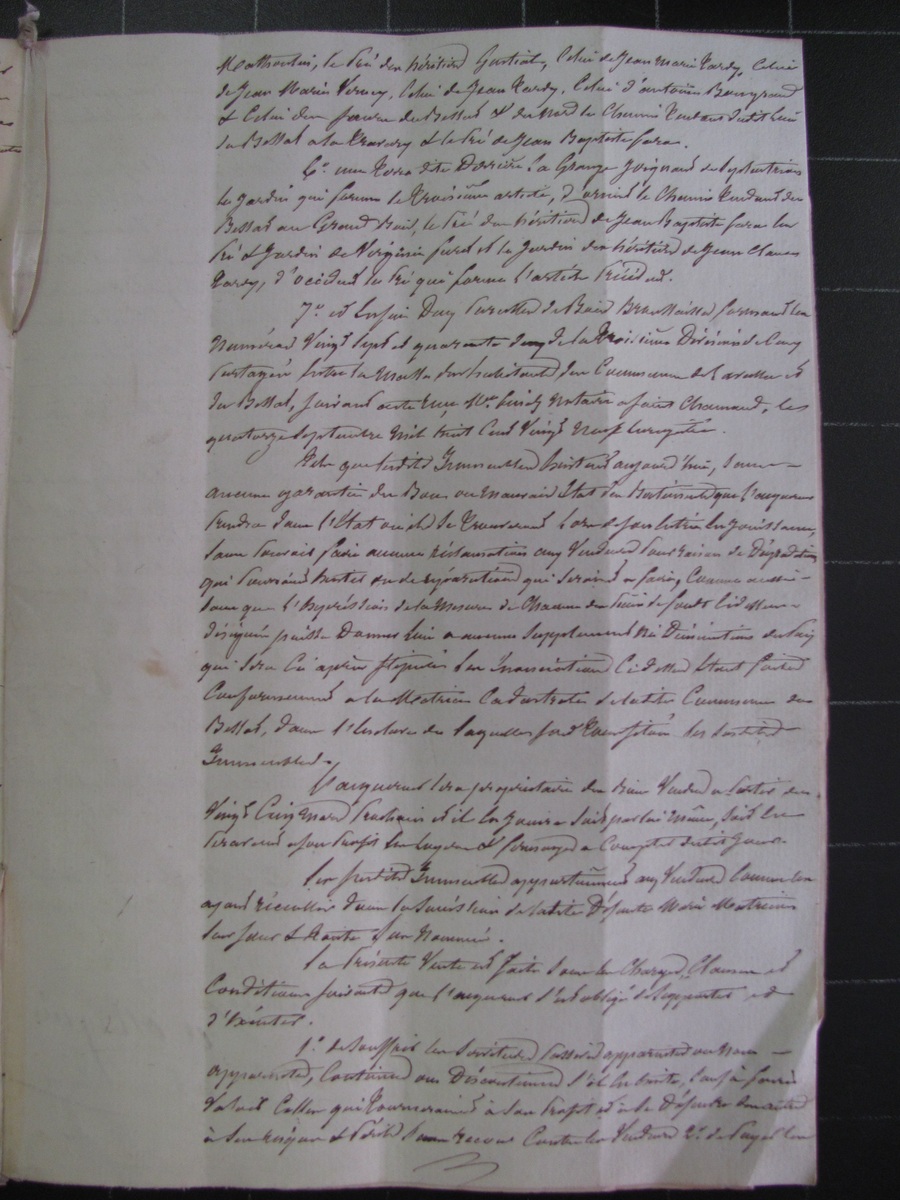 Mathevin, le Pré des héritiers Gustial, Celui de Jean Marie Tardy, Celui
de Jean Marie Verney, Celui de Jean Tardy, Celui d'antoine
& Celui des du Bessat & du Nord le Chemin Tendant dudit lieu
du Bessat a la & le Pré de Jean Baptiste fara.
6.° une Terre dite Derrière la Grange Joignant de Septentrion
le jardin qui forme le troisième article, d'orient le Chemin Tendant du
Bessat au Grand Bois, le Pré des héritiers de Jean Baptiste fara les
Pré & Jardin de Virginie et le Jardin des héritiers de Jean Claude
Tardy, d'occident le Pré qui forme l'article Précédent.
7.° et Enfin Deux Parcelles de Bois formant les
numéros Vingt sept et quarante deux de la troisième Division de Ceux
Partagés Entre la Masse des habitants des Communes de et
du Bessat, suivant acte reçu M.e notaire a saint Chamond, le
quatorze septembre mil huit Cent Vingt neuf Enregistré.
Tels que lesdits Immeubles Existent aujourd'hui, sans
aucune garantie du Bon ou mauvais Etat des Batiments que l'acquéreur
Prendra dans l'Etat où ils se trouveront lors de son Entrée En Jouissance,
sans Pouvoir faire aucune réclamation aux Vendeurs Pour raison de Dégradations
qui Pourraient Exister ou de réparations qui seraient a faire, Comme aussi
sans que l'Expression de la Mesure de Chacun des fonds Cidessus
désignés puisse Donner lieu a aucun Supplément ni Diminution du Prix
qui sera Ci après Stipulé les Enonciations Cidessus étant faites
Conformément a la Matrice Cadastrale de ladite Commune du
Bessat, dans l'Enclave de laquelle sont tous situés les susdits
Immeubles.
L'acquéreur sera propriétaire des Biens Vendus a Partir du
Vingt Cinq Mars Prochain et il En Jouira soit par lui même, soit En
Percevant a son Profit les Loyers & fermages a Compter dudit Jour.
Les susdits Immeubles appartiennent aux Vendeurs Comme les
ayant recueillis dans la Succession de ladite Défunte Marie
leur sœur & tante sus Nommée.
La Présente Vente est faite sous les Charges, Clauses et
Conditions suivantes que l'acquéreur s'est obligé de Supporter et
d'Exécuter.
1.° de Souffrir les Servitudes Passives apparentes ou non
apparentes, Continues ou Discontinues s'il En Existe, sauf à faire
Valoir Celles qui tourneraient à son Profit et à se Défendre des autres
à ses risques & Périls sans recours Contre les Vendeurs 2.° de Payer les